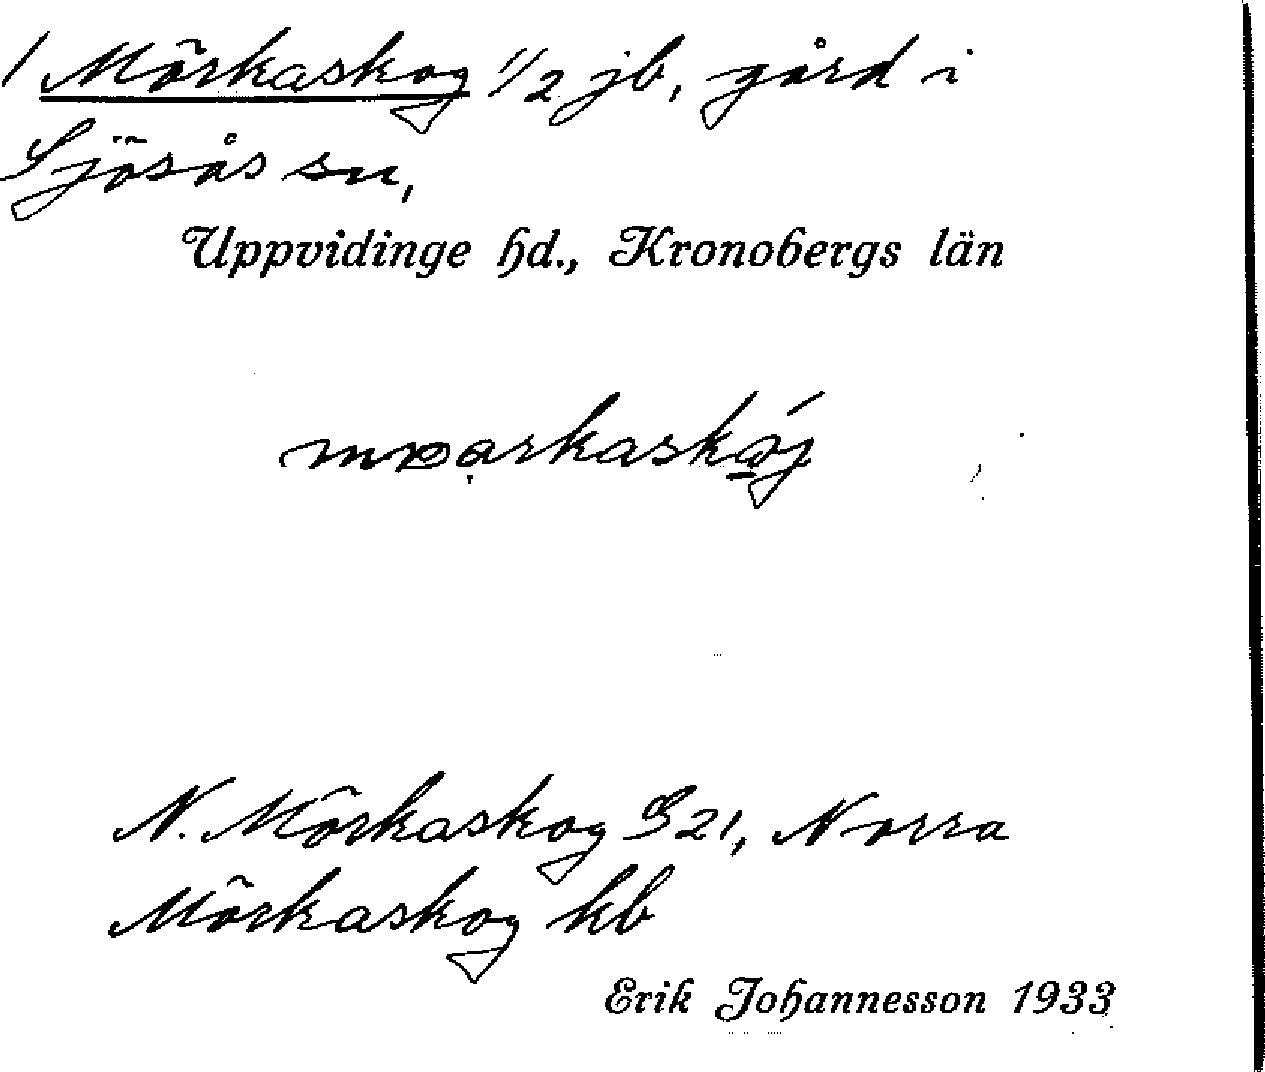 / Mörkaskog 1/2 jb, gård i
Sjösås sn,
Uppvidinge hd., Kronobergs län
N. Mörkaskog S 21, Norra
Mörkaskog kb
Erik Johannesson 1933